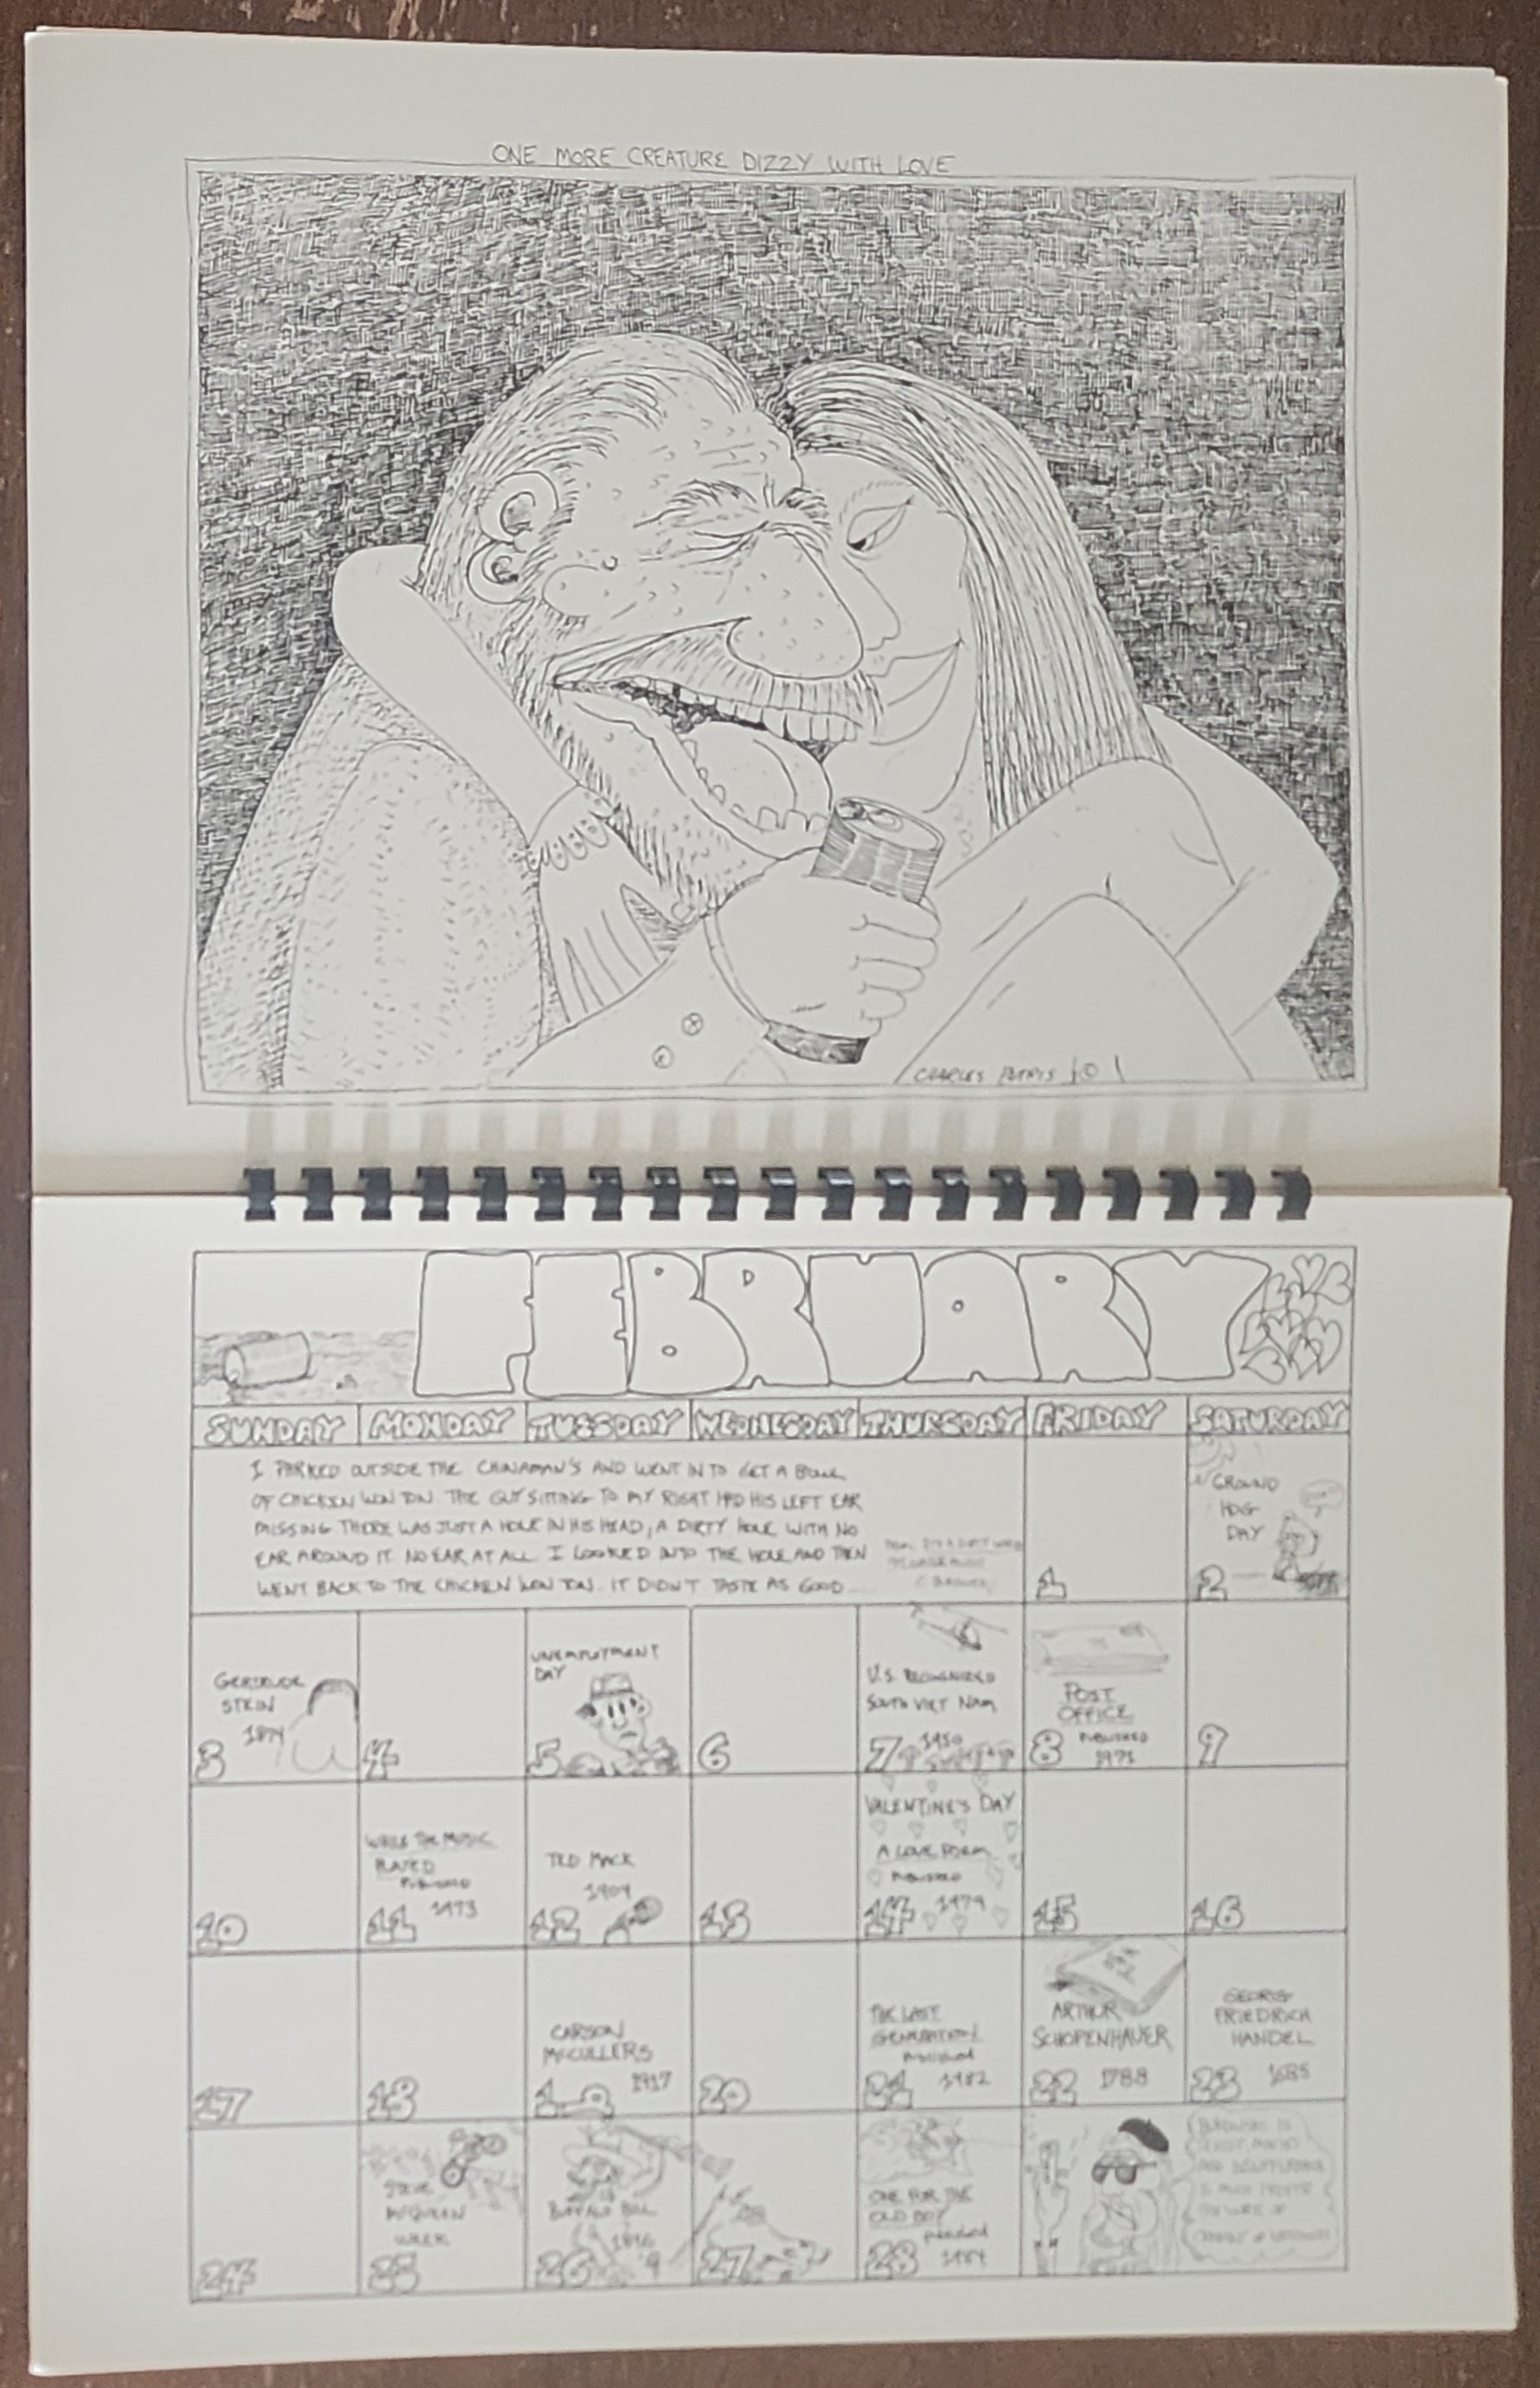 ONE MORE CREATURE DIZZY WITH LOVE
CHARLES
FEBRUARY
SUNDAY MONDAY TUESDAY WEDNESDAY THURSDAY FRIDAY SATURDAY
I PARKED OUTSIDE THE CHINAMAN'S AND WENT IN TO GET A BOWL
OF CHICKEN WON TON. THE GUY SITTING TO MY RIGHT HAD HIS LEFT EAR
MISSING THERE WAS JUST A HOLE IN HIS HEAD, A DIRTY HOLE WITH NO
EAR AROUND IT. NO EAR AT ALL. I LOOKED INTO THE HOLE AND THEN
WENT BACK TO THE CHICKEN WON TON. IT DIDN'T TASTE AS GOOD
1
GROUND
HOG
DAY
2
GERTRUDE
STEIN
1874
3
4
UNEMPLOYMENT
DAY
5
6
U.S. RECOGNIZED
SOUTH VIET NAM
1950
7
POST
OFFICE
PUBLISHED
1971
8
9
10
WHILE THE MUSIC
PLAYED
PUBLISHED
1973
11
TED MACK
1904
12
13
VALENTINE'S DAY
A LOVE POEM
PUBLISHED
1979
14
15
16
17
18
CARSON
McCULLERS
1917
19
20
THE LAST
GENERATION
PUBLISHED
1982
21
ARTHUR
SCHOPENHAUER
1788
22
GEORG
FRIEDRICH
HANDEL
1685
23
24
STEVE
McQUEEN
WEEK
25
BUFFALO BILL
1846
26
27
ONE FOR THE
OLD BOY
published
1984
28